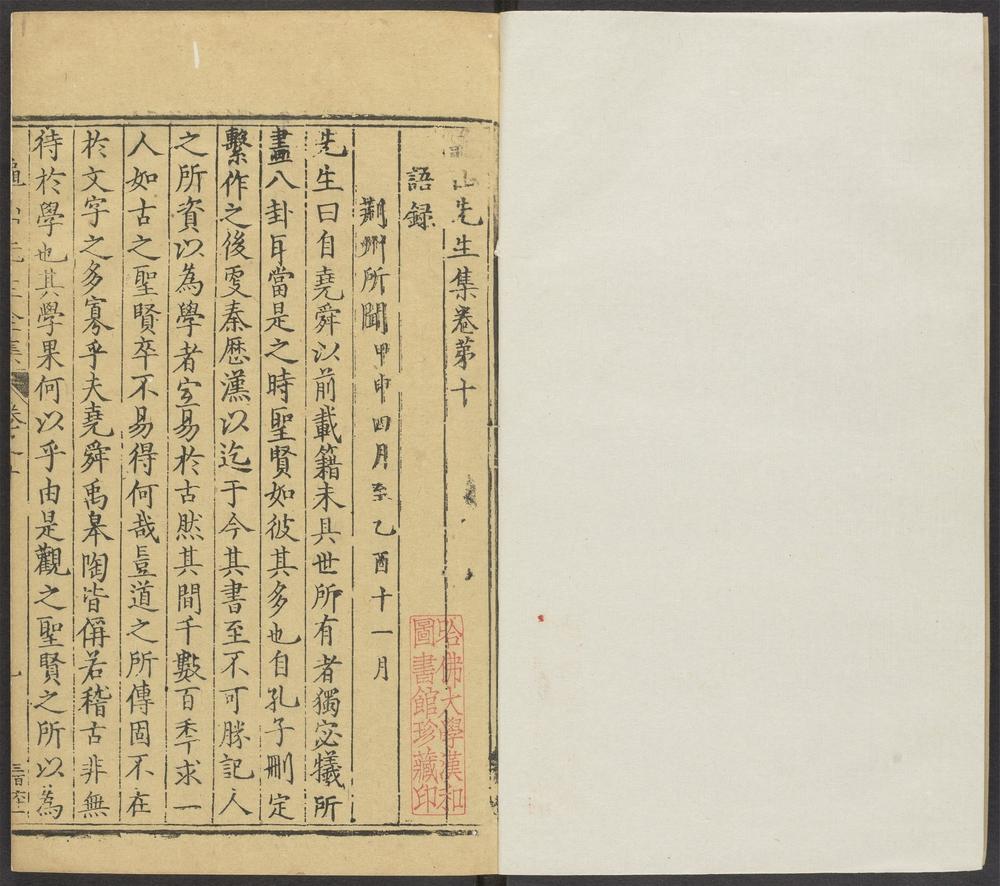 龜山先生集卷第十
語録
荆州所聞甲申四月至乙酉十一月
先生曰自堯舜以前載籍未具世所有者獨宓犧所
畫八卦耳當是之時聖賢如彼其多也自孔子刪定
繫作之後更秦歷漢以迄于今其書至不可勝記人
之所資以為學者宜易於古然其間千數百年求一
人如古之聖賢卒不易得何哉豈道之所傳固不在
於文字之多寡乎夫堯舜禹皋陶皆偁若稽古非無
待於學也其學果何以乎由是觀之聖賢之所以為
哈佛大學漢和
圖書館珍藏印